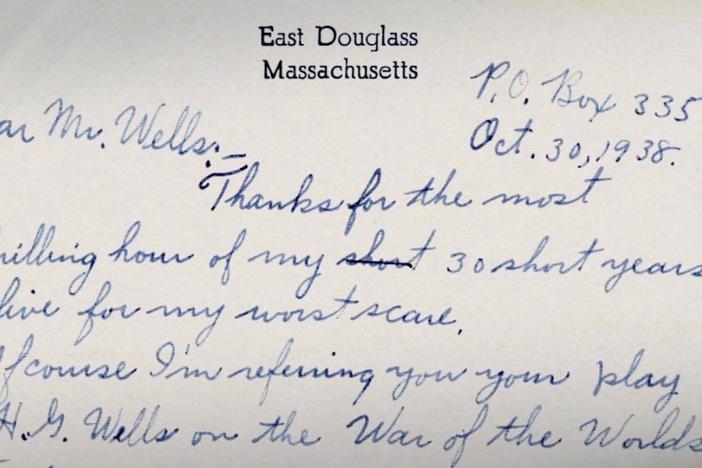 East Douglass
Massachusetts
P.O. Box 335
Oct. 30, 1938.
ar Mr. Wells:–
Thanks for the most
rilling hour of my short 30 short years
live for my worst scare.
fcourse I'm referring you your play
H.G. Wells on the War of the Worlds